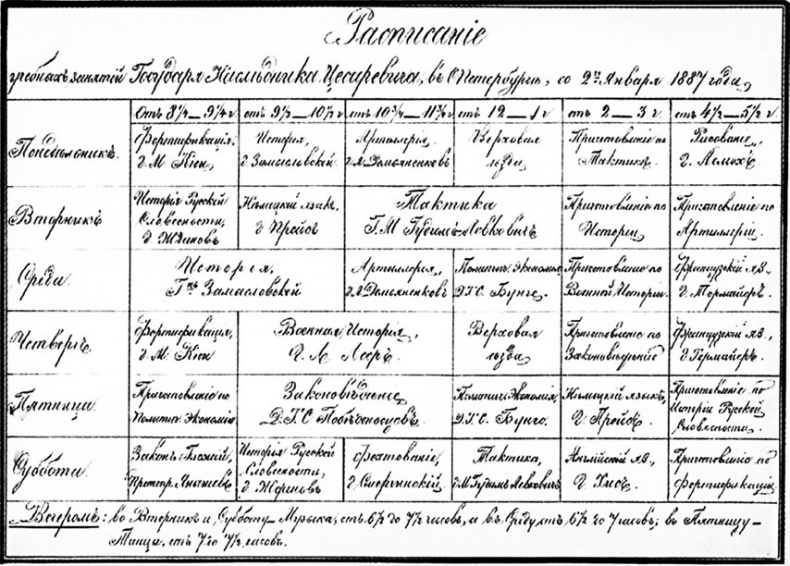 Расписаніе
учебныхъ занятій Государя Наслѣдника Цесаревича, въ С. Петербургѣ, со 2го Января 1887 года,
отъ 8¾ — 9¼ ч. отъ 9½ — 10½ ч. отъ 10¾ — 11¾ ч. отъ 12 — 1 ч. отъ 2 — 3 ч. отъ 4½ — 5½ ч.
Понедѣльникъ. Фортификація, Исторія, Артиллерія, Верховая Приготовленіе по Рисованіе,
Г. М. Кюи. Г. Замысловскій Г. Л. Демьяненковъ ѣзда. Тактикѣ.
Вторникъ Исторія Русской Нѣмецкій языкъ, Тактика Приготовленіе по Приготовленіе по
Словесности, Г. М. Гудимъ-Левковичъ Исторіи. Артиллеріи.
Среда Исторія, Артиллерія, Политич. Экономія, Приготовленіе по Французскій яз.
Замысловскій Г. Л. Демьяненковъ Д.Т.С. Бунге. Военной Исторіи.
Четвергъ Фортификація, Военная Исторія, Верховая Приготовленіе по Французскій яз.,
Г. М. Кюи Г. Л. Лееръ. ѣзда. Законовѣдѣнію
Пятница Приготовленіе по Законовѣдѣніе, Политич. Экономія, Нѣмецкій языкъ, Приготовленіе по
Политич. Экономіи Д.Т.С. Побѣдоносцевъ. Д.Т.С. Бунге. Исторіи Русской
Словесности.
Суббота. Законъ Божій, Исторія Русской Фехтованіе, Тактика, Англійскій яз., Приготовленіе по
Протопр. Янышевъ Словесности, Г. М. Гудимъ-Левковичъ Г. Хисъ. Фортификаціи.
Вечеромъ: во Вторникъ и Субботу — Музыка, отъ 6½ до 7½ часовъ, а въ Среду отъ 6½ до 7 часовъ; въ Пятницу —
Танцы, отъ 7 до 7½ часовъ.